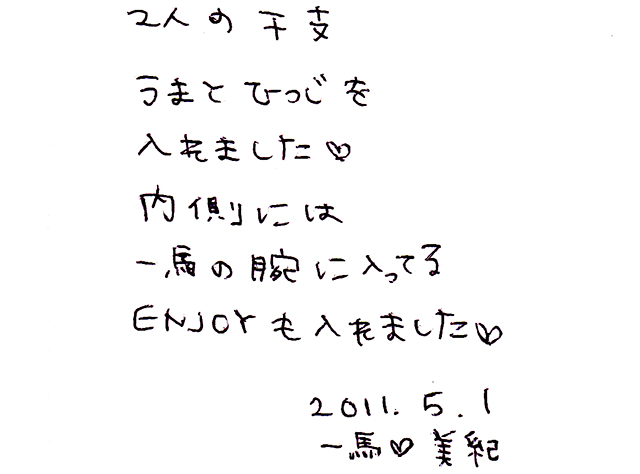 2人の干支
うまとひつじを
入れました♡
内側には
一馬の腕に入ってる
ENJOYも入れました♡
2011.5.1
一馬♡美紀